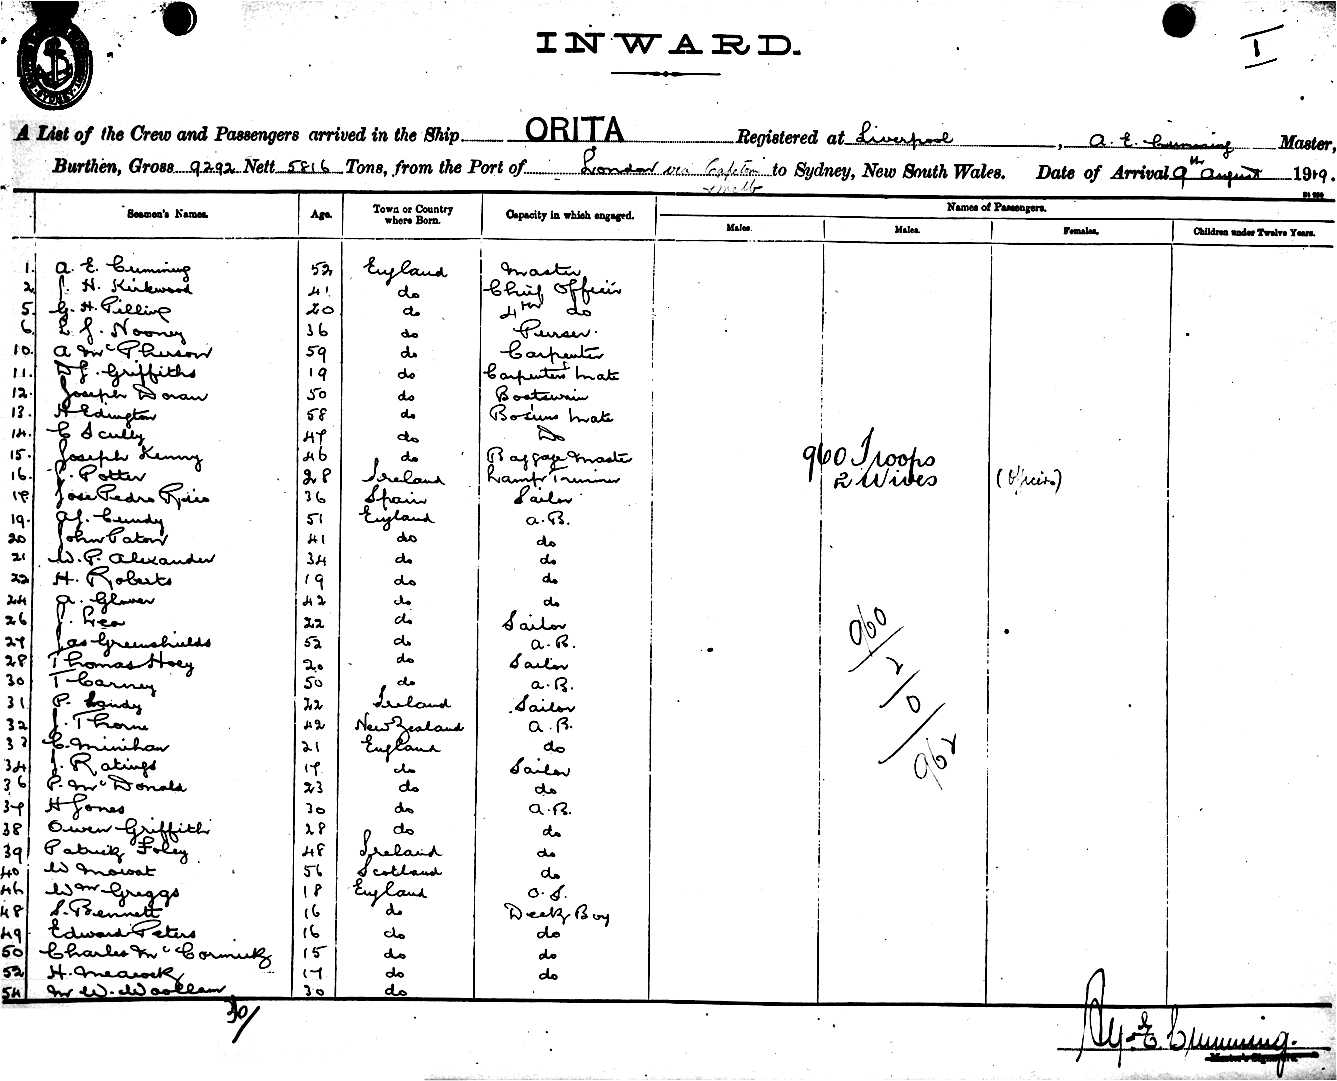 SYDNEY
INWARD.
I
A List of the Crew and Passengers arrived in the Ship ORITA Registered at Liverpool, A. E. Cumming Master,
Burthen, Gross 9292 Nett 5816 Tons, from the Port of London via Capetown to Sydney, New South Wales. Date of Arrival 9th August 1919.
& Melb
Seamen's Names. Age. Town or Country where Born. Capacity in which engaged. Names of Passengers.
Males. Males. Females. Children under Twelve Years.
1. A. E. Cumming 52 England Master
2. J. H. Kirkwood 41 do Chief Officer
5. G. H. Pilling 20 do 4th do
6. E. J. Nooney 36 do Purser.
10. A McPherson 59 do Carpenter
11. D J. Griffiths 19 do Carpenters Mate
12. Joseph Doran 50 do Boatswain
13. H Edington 58 do Bosuns Mate
14. C Scully 47 do Do
15. Joseph Kenny 46 do Baggage Master 960 Troops
16. J. Potter 28 Ireland Lamp Trimmer 2 Wives (Officers)
17 Jose Pedro Rios 36 Spain Sailor
19. A J. Cundy 51 England A. B.
20 John Paton 41 do do
21 W. P. Alexander 34 do do
22 H. Roberts 19 do do
24 A. Glover 42 do do
26 J. Lea 22 do Sailor 960
27 Jas Greenshields 52 do A. B.
28 Thomas Hoey 20 do Sailor 2
30 T Carney 50 do A. B.
31 P. Landy 22 Ireland Sailor 0
32 J. Thorne 42 New Zealand A. B.
33 C. Minihan 21 England do
34 J. Ratings 17 do Sailor 962
36 P. McDonald 23 do do
37 H Jones 30 do A. B.
38 Owen Griffith 28 do do
39 Patrick Foley 48 Ireland do
40 W Mowat 56 Scotland do
46 Wm Greggs 18 England O. S.
48 S. Bennett 16 do Deck Boy
49 Edward Peters 16 do do
50 Charles McCormick 15 do do
52 H. Meacock 17 do do
54 Mr W. Woollam 30 do
30/
A. E. Cumming.
Master's Signature.